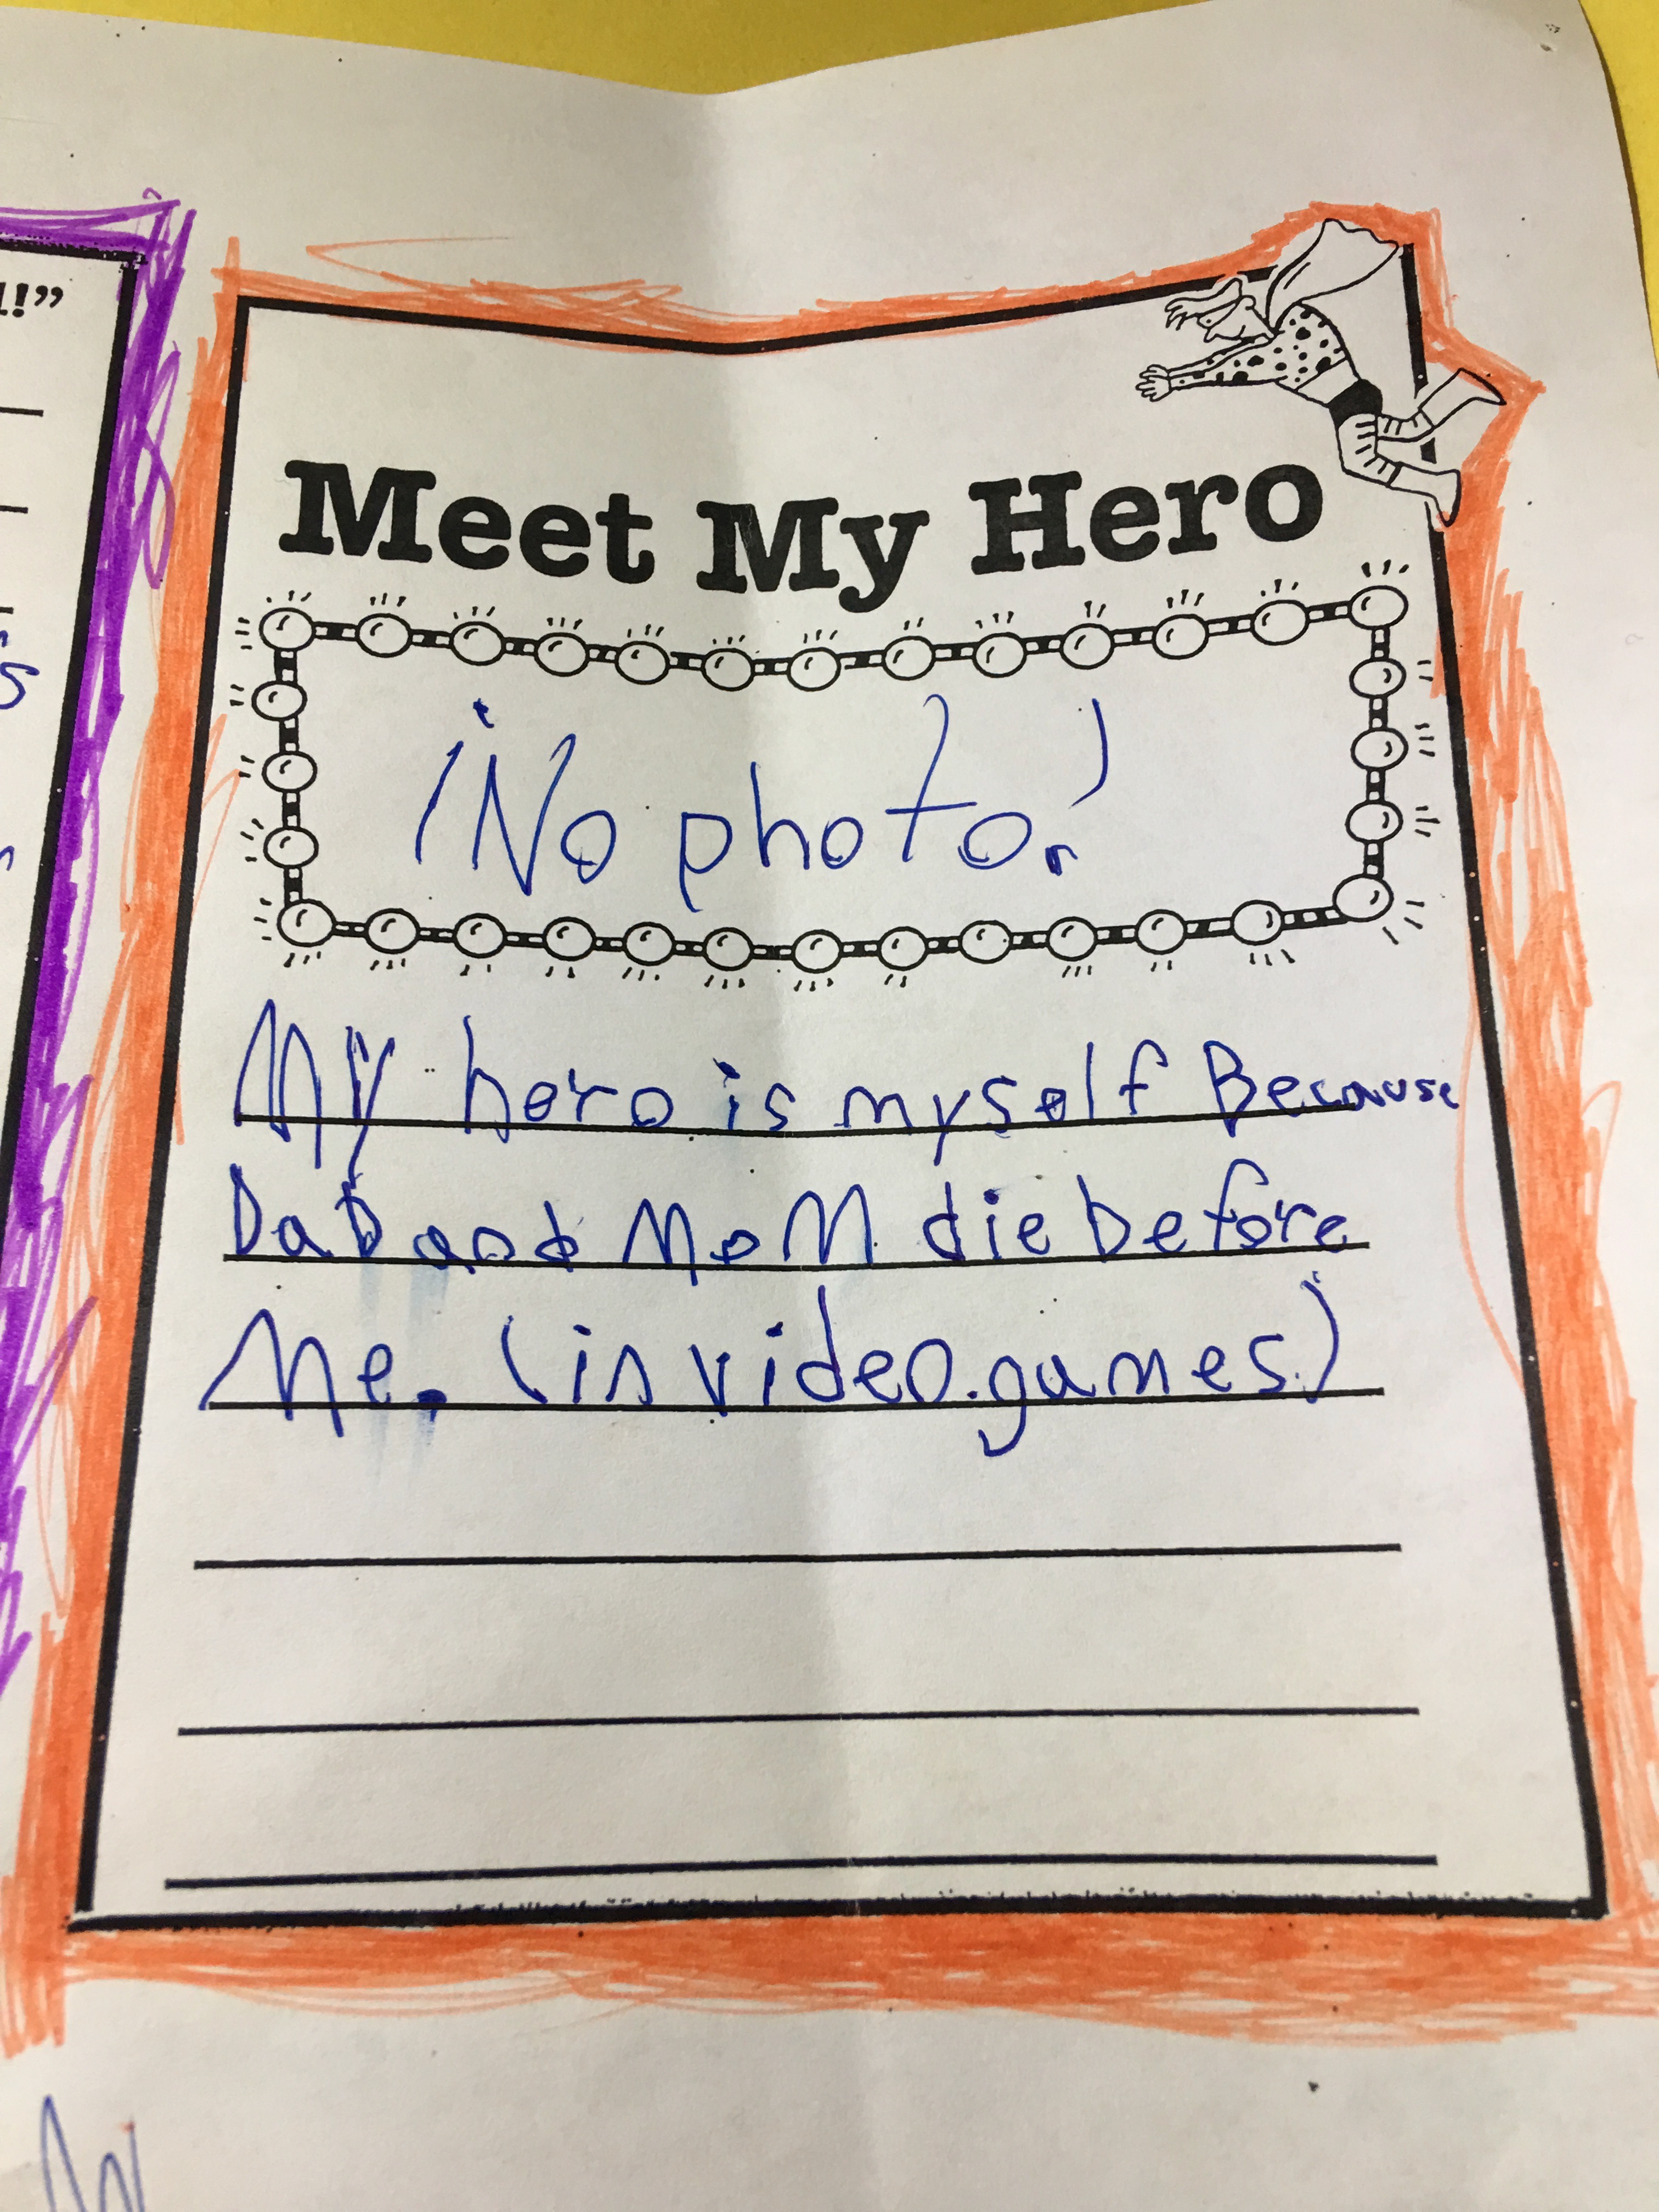 !”
Meet My Hero
¡No photo!
s
My hero is myself Because
DaD and MoM die before
Me. (in video games)